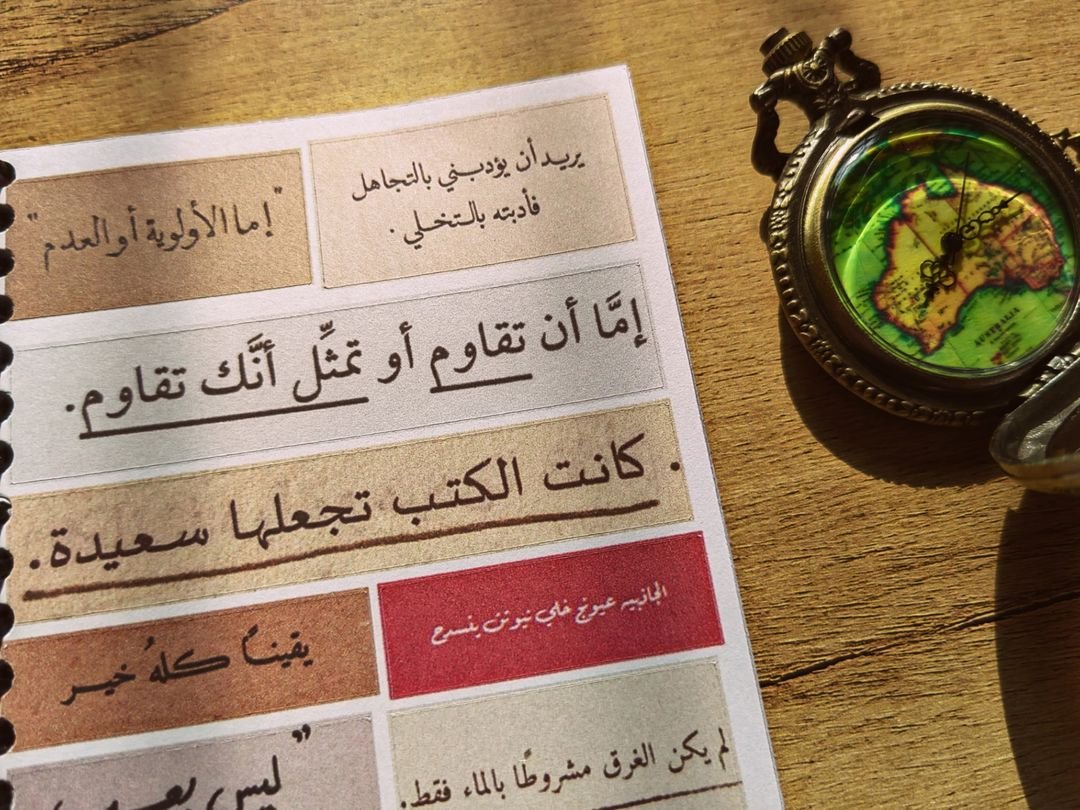 يريد أن يؤدبني بالتجاهل
فأدبته بالتخلي .
"إما الأولوية أو العدم"
إمَّا أن تقاوم أو تمثِّل أنَّك تقاوم.
. كانت الكتب تجعلها سعيدة.
الجاذبيه عيونج خلي نيوتن ينسدح
يقيناً كلهُ خير
لم يكن الغرق مشروطًا بالماء فقط.
" ليس
AUSTRALIA